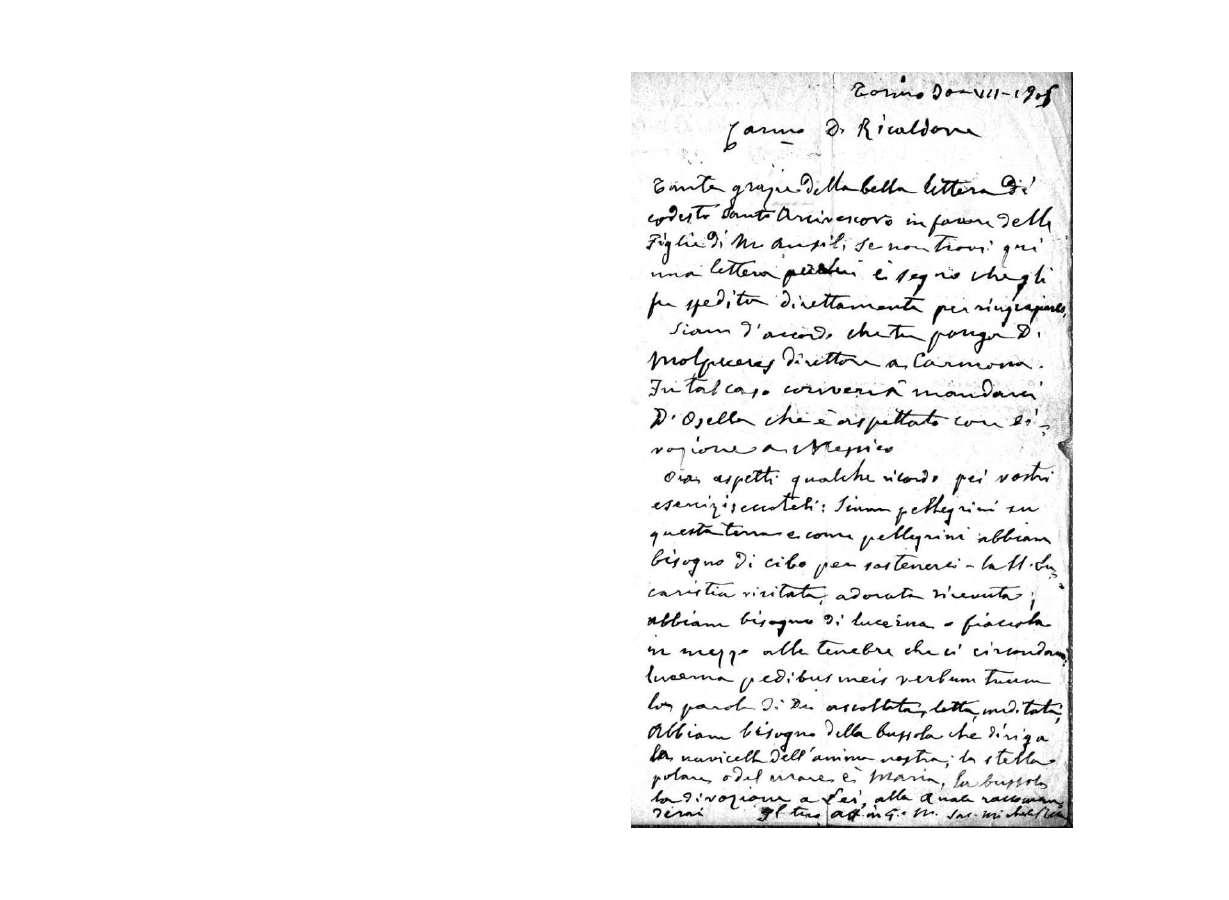 Torino 30-VII-1905
Carmo D. Ricaldone
Tante grazie della bella lettera di
codesto Santo Arcivescovo in favore delle
Figlie di M. Ausil. Se non trovi qui
una lettera è segno che gli
fu spedita direttamente per
Siam d'accordo che tu ponga D.
Molpeceres direttore a Carmona.
In tal caso converrà mandarci
D. Osella che è aspettato con
vozione a Messico
Ora aspetti qualche ricordo pei vostri
esercizi: Siam pellegrini su
questa terra e come pellegrini abbiam
bisogno di cibo per sostenerci - la SS. Eu
caristia visitata, adorata ricevuta;
abbiam bisogno di lucerna o fiaccola
in mezzo alle tenebre che ci circondano,
lucerna pedibus meis verbum tuum
la parola di Dio ascoltata, letta, meditata,
Abbiam bisogno della bussola che diriga
la navicella dell'anima nostra; la stella
polare o del mare è Maria, la bussola
la divozione a Lei, alla quale raccoman
derai Il tuo aff. in G. e M. Sac. Michele Rua